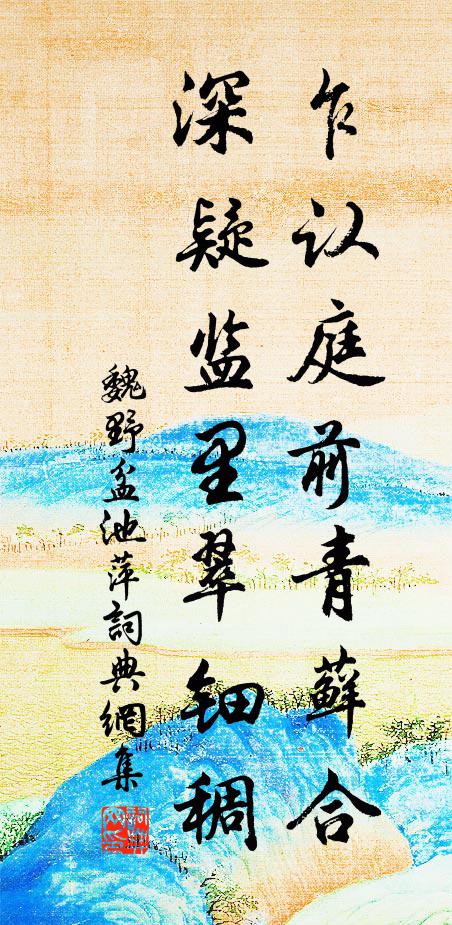 乍认庭前青藓合
深疑监里翠钿稠
魏野盆池萍詞典網集